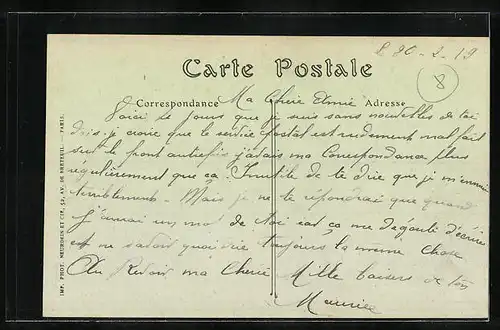 20-2-19
8
Carte Postale
Correspondance Ma Cherie Aimé Adresse
Voici 10 jours que je suis sans nouvelles de toi
je croire que le service postal est rudement mal fait
sur le front autrefois j'avais ma Correspondance plus
régulièrement que ça. Inutile de te dire que je m'ennuie
terriblement. Mais je ne te repondrai que quand
J'aurai un mot de toi car ça me dégoute d'écrire
et ne savoir quoi dire toujours la même chose
Au Revoir ma Cherie Mille baisers de ton
Maurice
IMP. PHOT. NEURDEIN ET CIE, 52, AV. DE BRETEUIL. — PARIS.